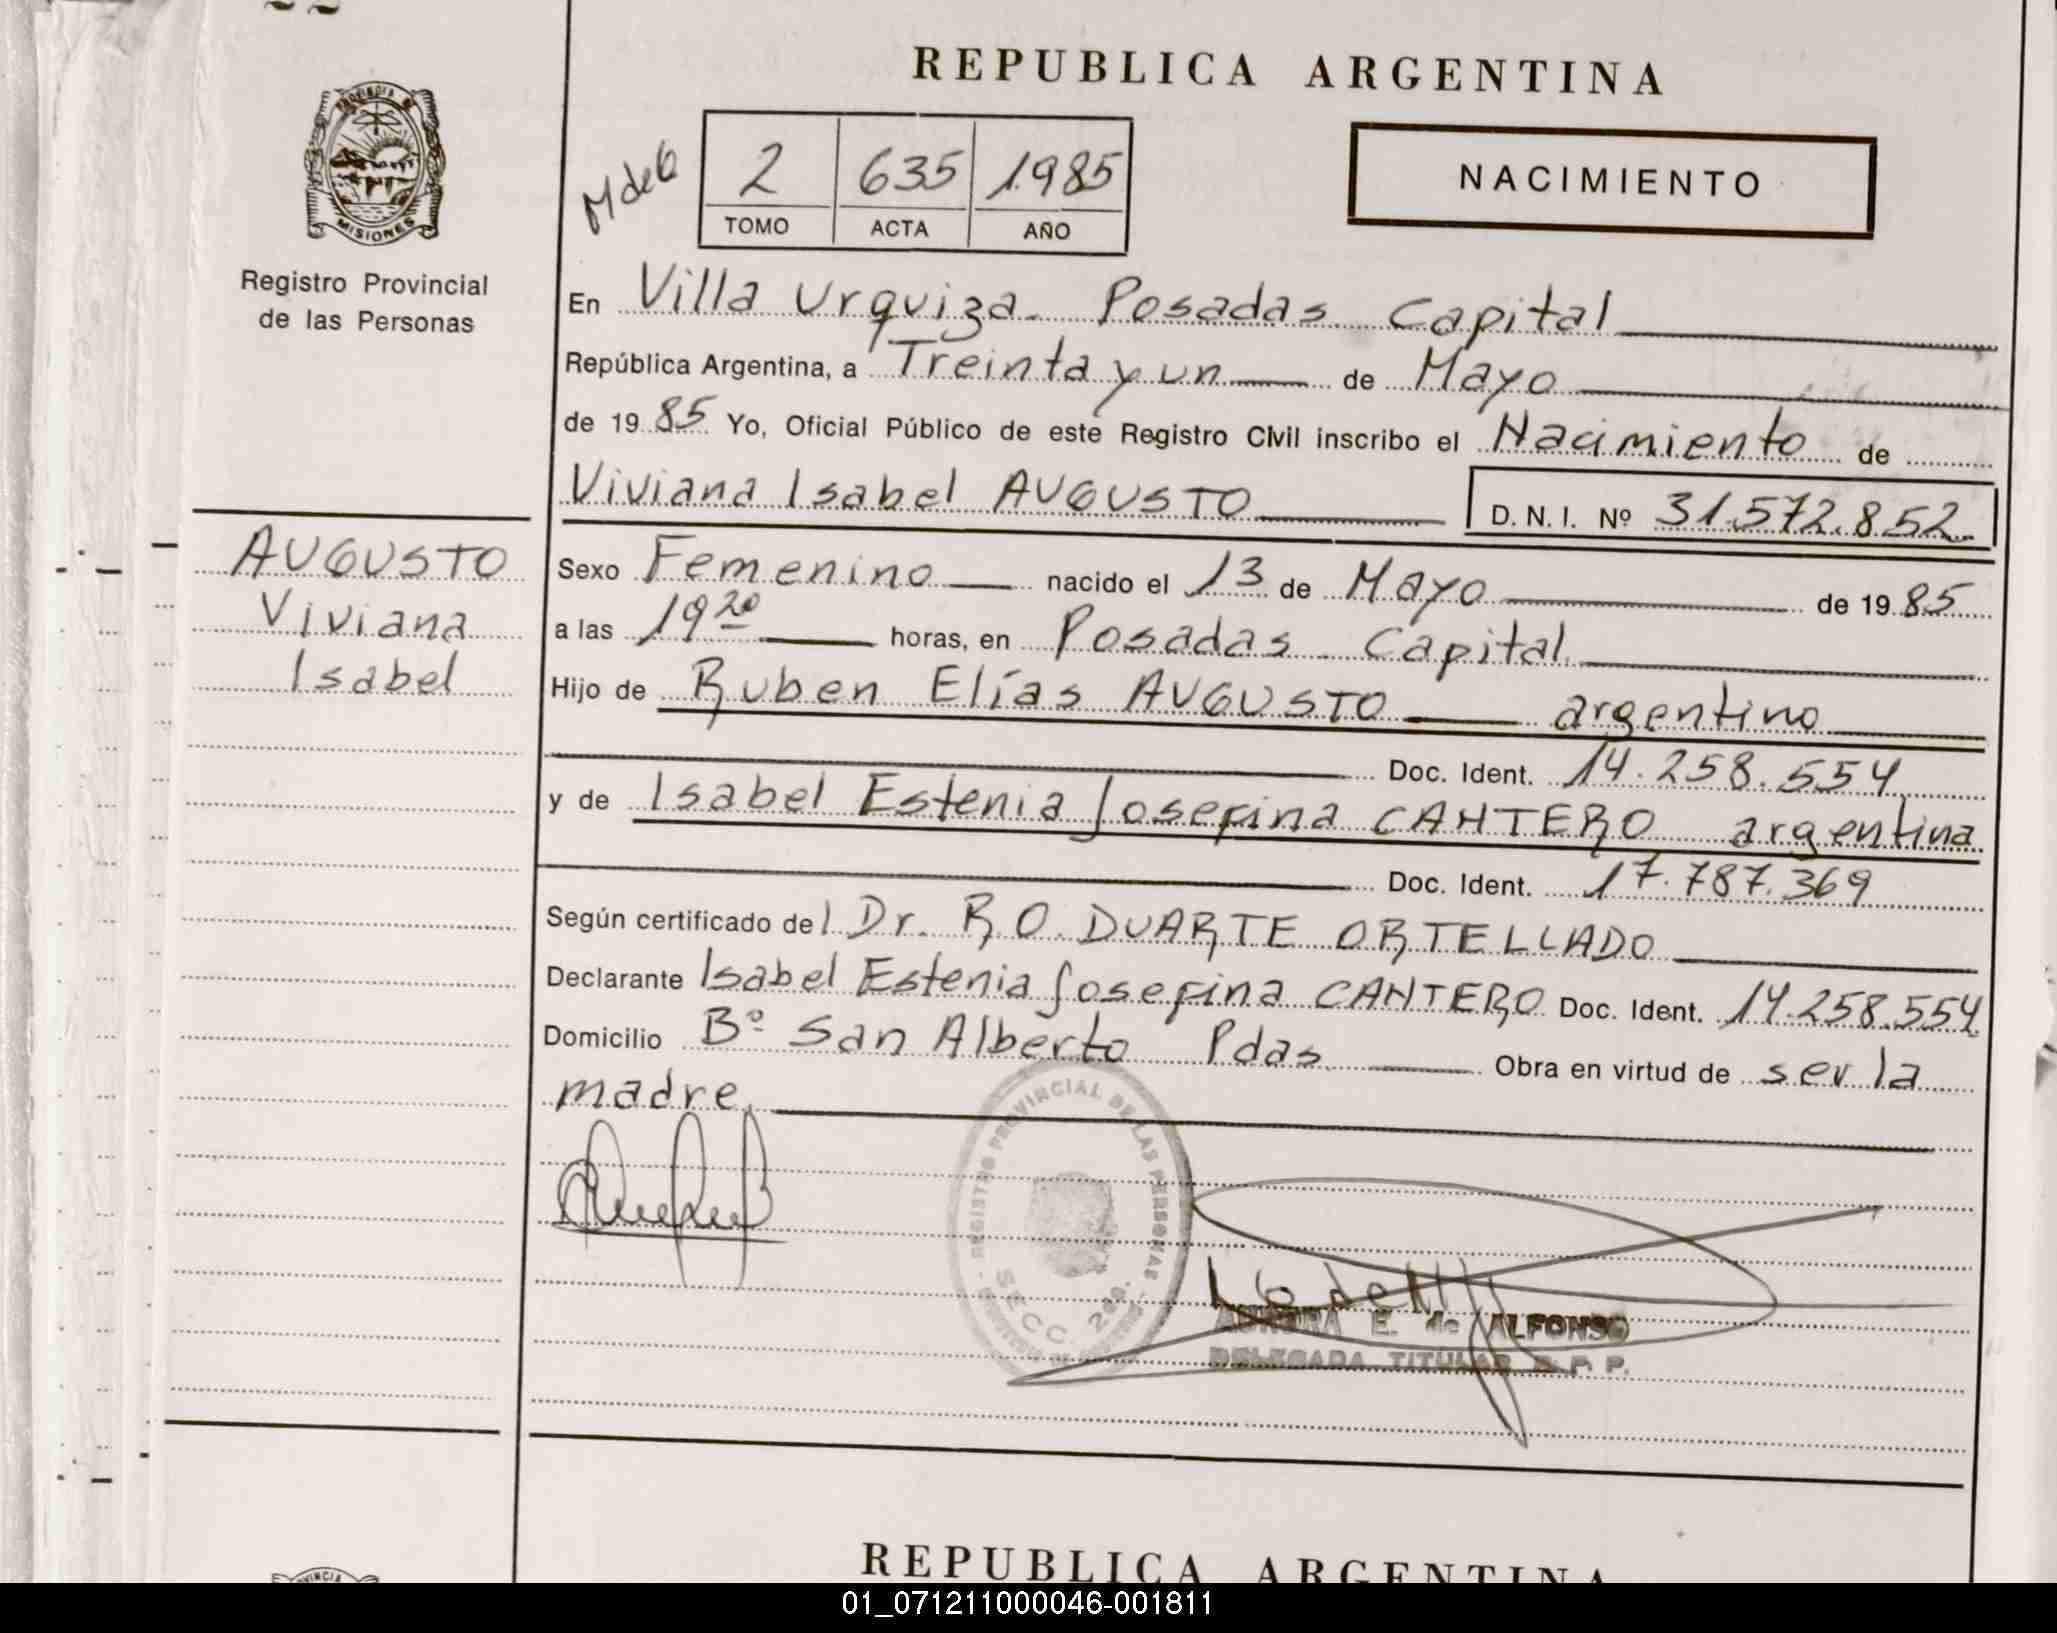 REPUBLICA ARGENTINA
PROVINCIA DE
MISIONES
M de 6
2 635 1985
TOMO ACTA AÑO
NACIMIENTO
Registro Provincial
de las Personas
En Villa Urquiza. Posadas Capital
República Argentina, a Treinta y un de Mayo
de 19 85 Yo, Oficial Público de este Registro Civil inscribo el Nacimiento de
Viviana Isabel AUGUSTO D.N.I. Nº 31.572.852
AUGUSTO
Viviana
Isabel
Sexo Femenino nacido el 13 de Mayo de 19 85
a las 19 20 horas, en Posadas Capital
Hijo de Ruben Elías AUGUSTO argentino
Doc. Ident. 14.258.554
y de Isabel Estenia Josefina CANTERO argentina
Doc. Ident. 17.787.369
Según certificado del Dr. R.O. DUARTE ORTELLADO
Declarante Isabel Estenia Josefina CANTERO Doc. Ident. 14.258.554
Domicilio Bº San Alberto Pdas Obra en virtud de ser la
madre.
REGISTRO PROVINCIAL DE LAS PERSONAS
SECC.
AURORA E. de ALFONSO
DELEGADA TITULAR R.P.P.
REPUBLICA ARGENTINA
01_071211000046-001811